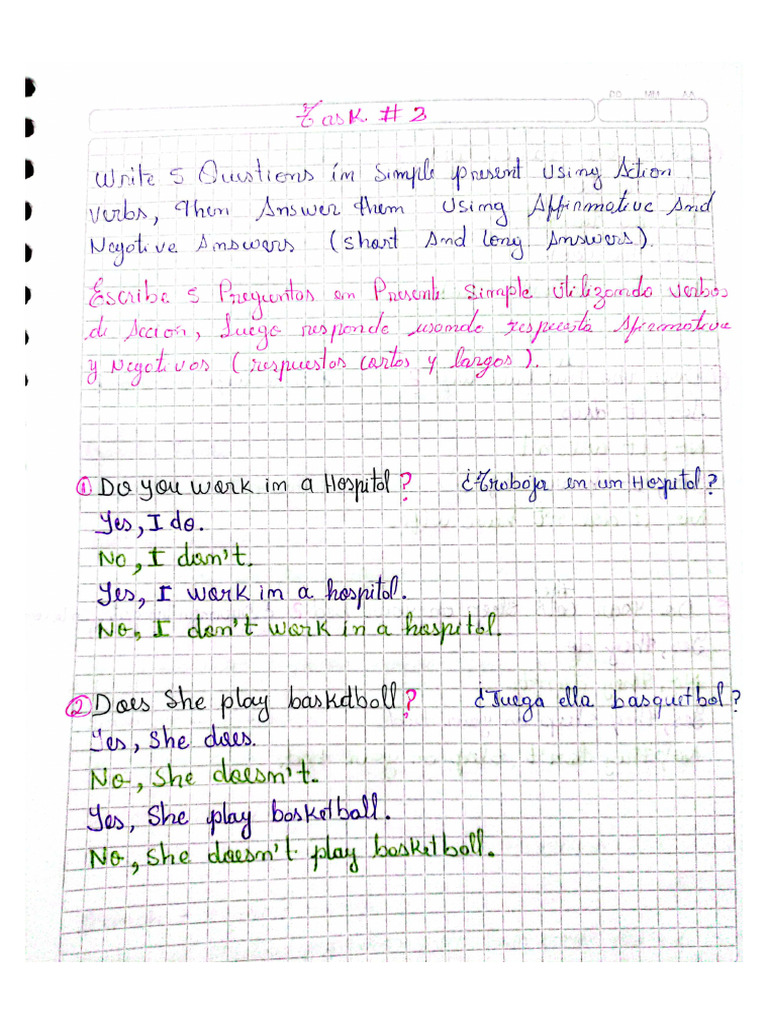 DD MM AA
Task # 3
Write 5 Questions in simple present using Action
verbs, Then Answer them using Affirmative And
Negative Answers (short And long Answers).
Escribe 5 Preguntas en Presente simple utilizando verbos
de Accion, luego responde usando respuesta Afirmativa
y Negativas (respuestas cortas y largas).
① Do you work in a Hospital? ¿Trabaja en un Hospital?
Yes, I do.
No, I don't.
Yes, I work in a hospital.
No, I don't work in a hospital.
② Does She play basketball? ¿Juega ella basquetbol?
Yes, She does.
No, She doesn't.
Yes, She play basketball.
No, She doesn't play basketball.